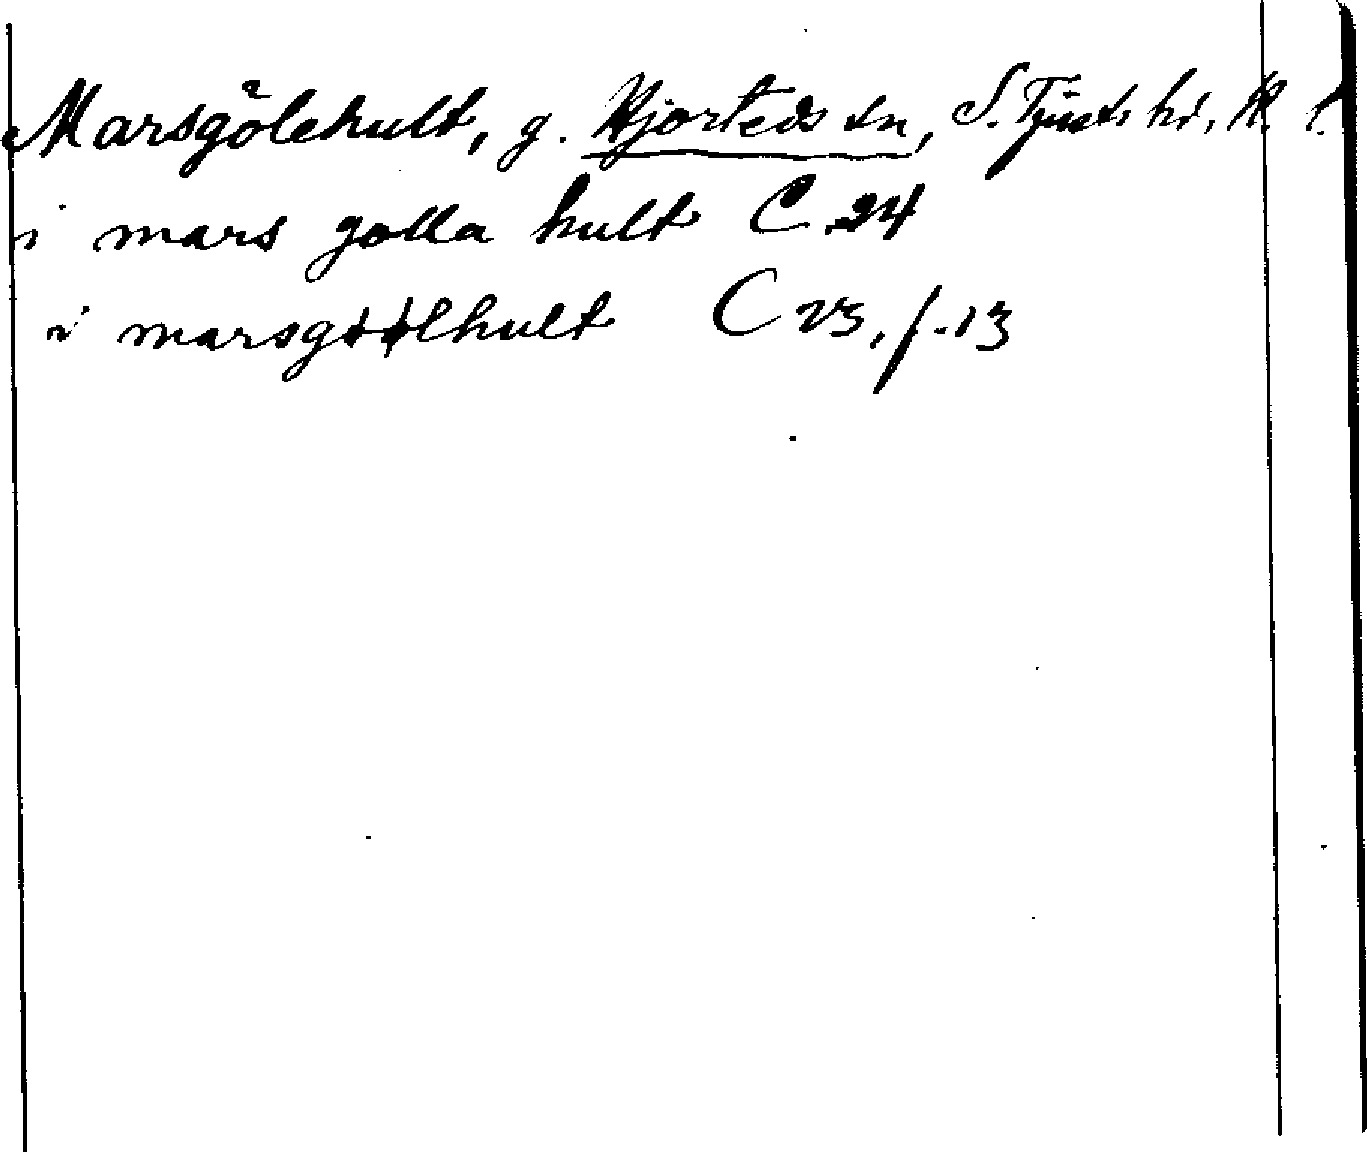 Marsgölehult, g. Hjorteds sn, S. Tjusts hd, K. l.
i mars golla hult C 24
i marsgøølhult C 23, f. 13